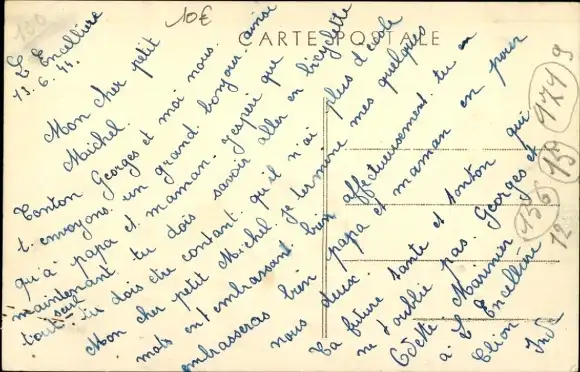 150
10€
CARTE POSTALE
L'Encellière
13.6.44.
Mon cher petit
Maichel.
Tonton Georges et moi nous
t'envoyons un grand bonjour ainsi
qu'à papa et maman. j'espère que
maintenant tu dois savoir aller en bicyclette
tout seul tu dois être contant qu'il n'ai plus d'école
Mon cher petit Michel je termine mes quelques
mots en t'embrassant bien affectueusement tu en
embrasseras bien papa et maman en pour
nous deux.
Ta future tante et tonton qui
ne t'oublie pas. Georges et
Odette Marinier
à L'Encellière
Clion
Indre
1719
159
156
12